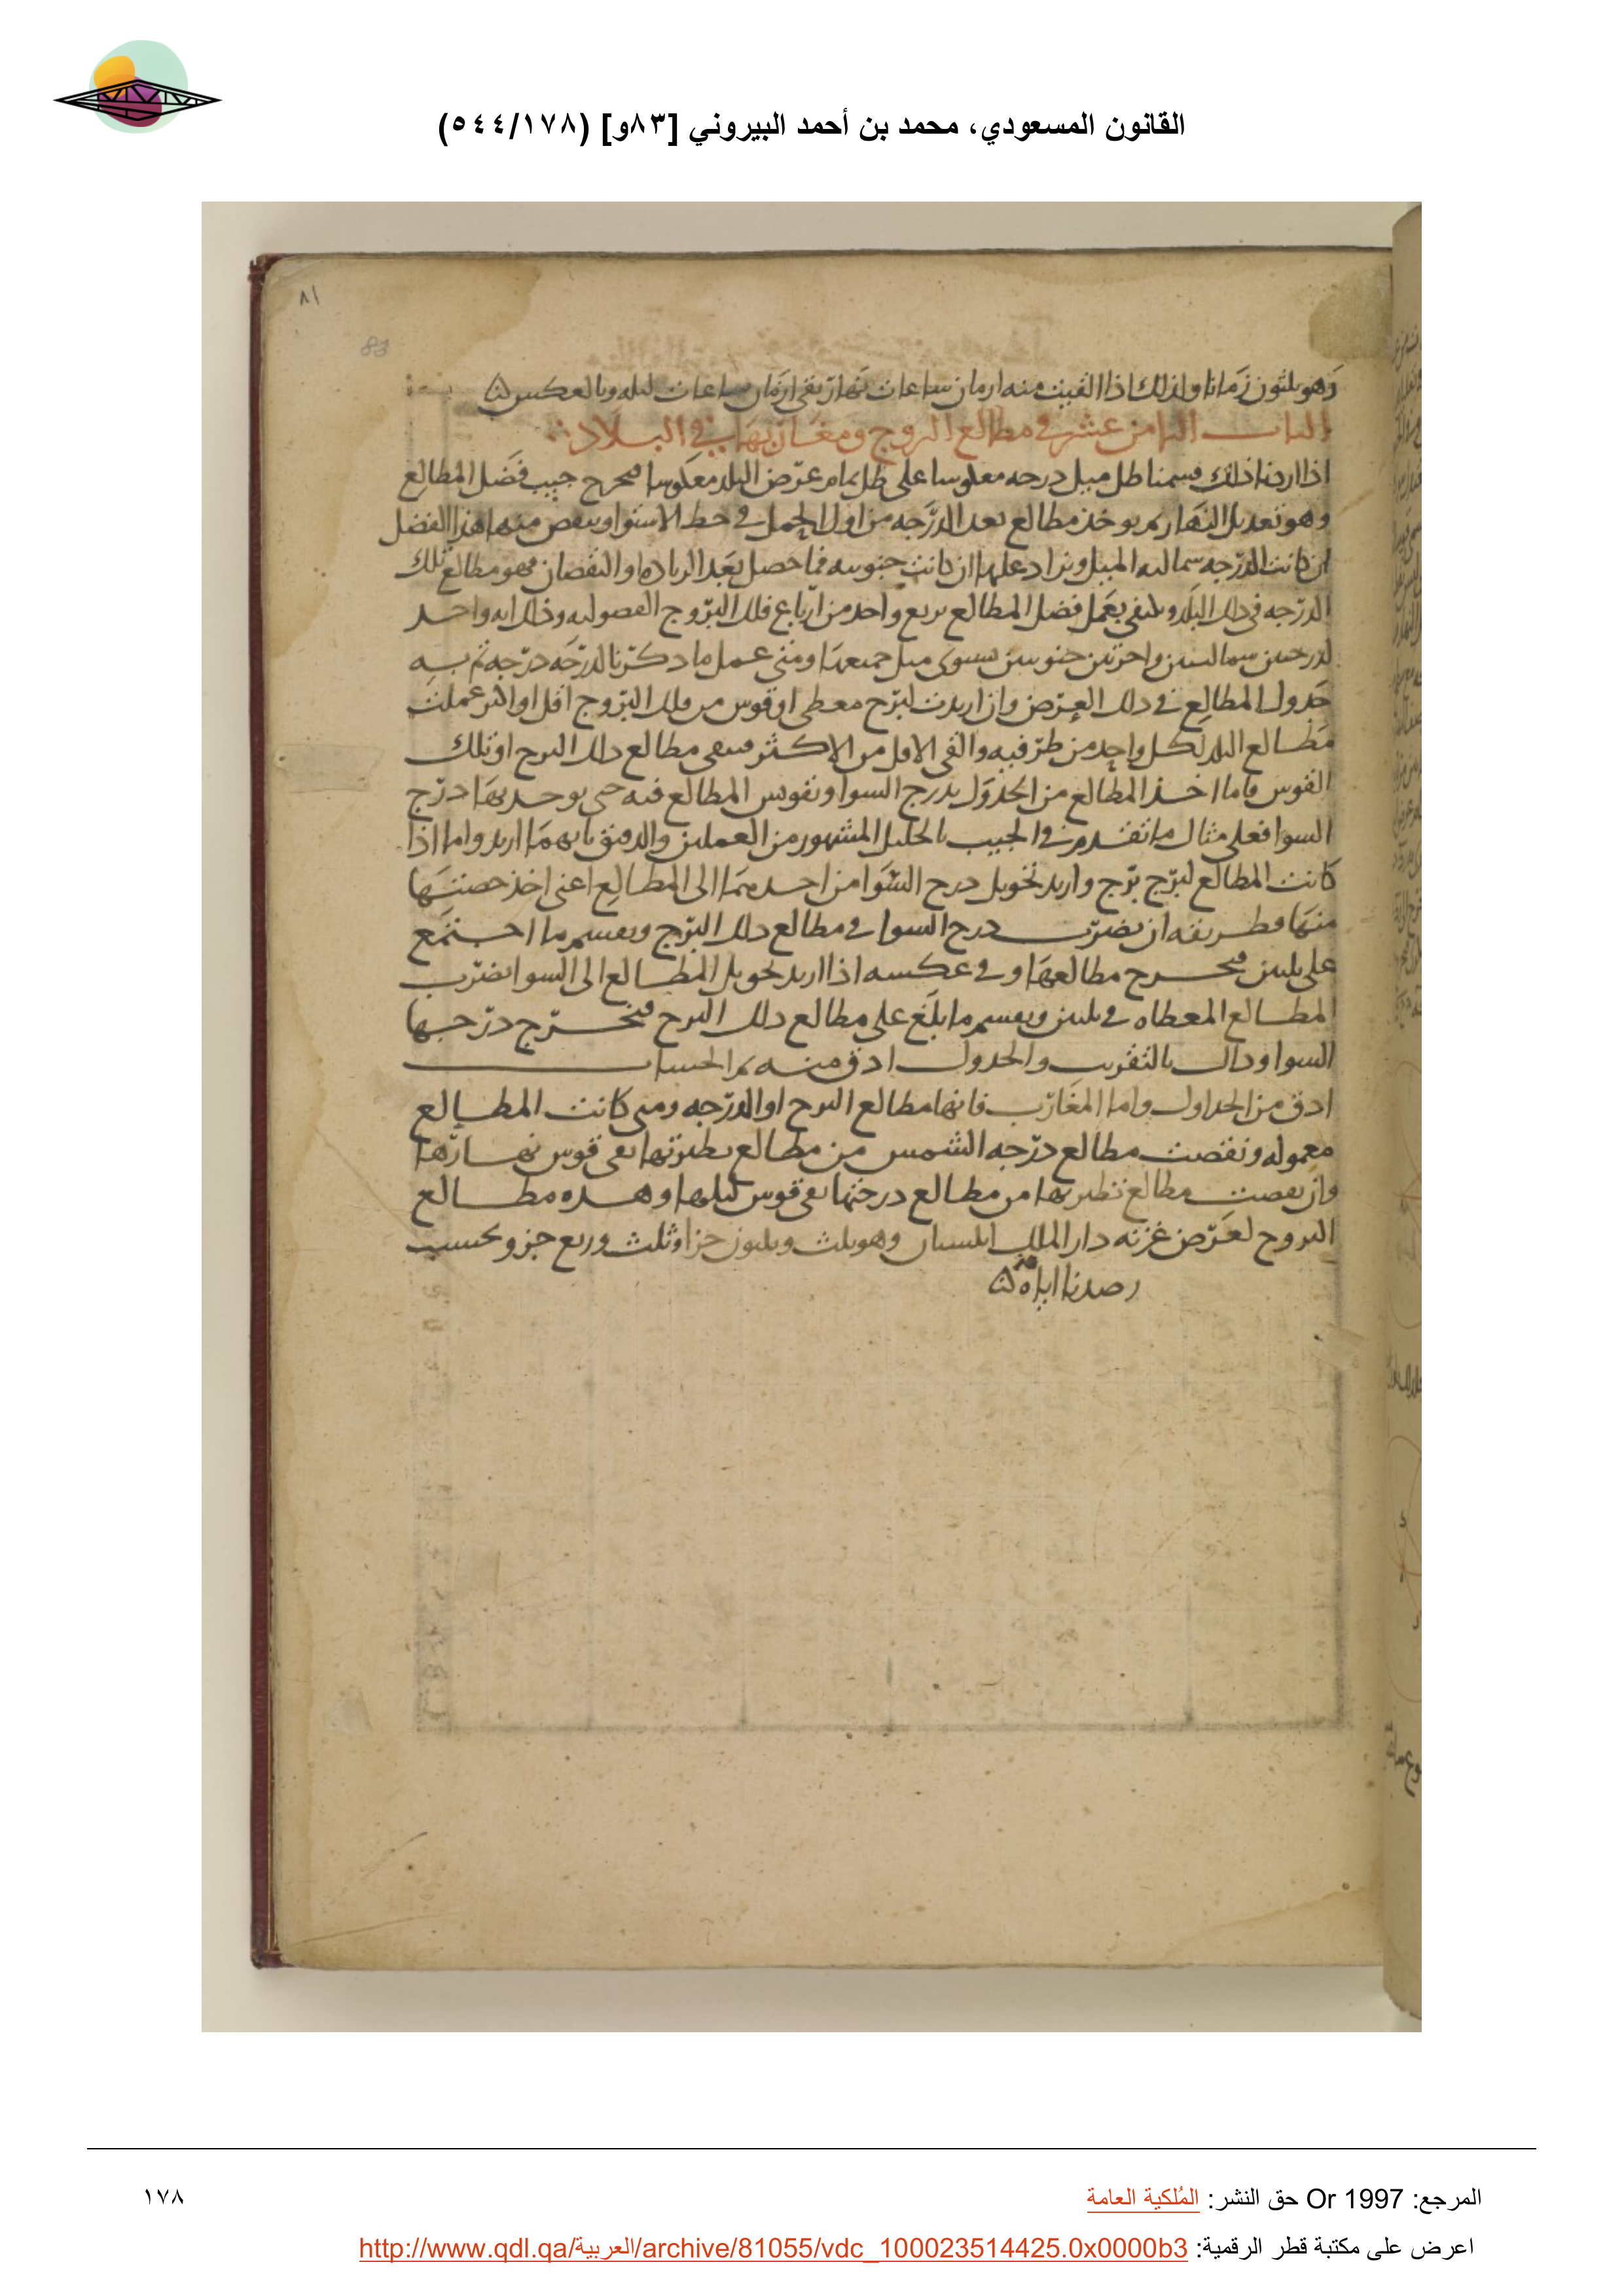 القانون المسعودي، محمد بن أحمد البيروني [٨٣و] (٥٤٤/١٧٨)
٨١
83
وهو ثلثون زمانا ولذلك اذا القيت منه ازمان ساعات نهار بقى ازمان ساعات ليله وبالعكس
الباب الثامن عشر في مطالع البروج ومغاربها في البلاد
اذا اردنا ذلك قسمنا ظل ميل درجه معكوسا على ظل تمام عرض البلد معكوسا فيخرج جيب فضل المطالع
وهو تعديل النهار ثم يوخذ مطالع بعد الدرجه من اول الحمل في خط الاستوا وينقص منها هذا الفضل
ان كانت الدرجه شماليه الميل ويزاد عليها ان كانت جنوبيه فما حصل بعد الزياده او النقصان فهو مطالع تلك
الدرجه في ذلك البلد ويكتفى بعمل فضل المطالع بربع واحد من ارباع فلك البروج الفصوليه وذلك انه واحد
لدرجتين شماليتين واخرتين جنوبيتين يستوى ميل جميعها ومتى عمل ما ذكرنا لدرجه درجه تم به
جدول المطالع في ذلك العرض وان اريدت لبرج معطى او قوس من فلك البروج اقل او اكثر عملت
مطالع البلد لكل واحد من طرفيه والقى الاقل من الاكثر فيبقى مطالع ذلك البرج او تلك
القوس فاما اخذ المطالع من الجدول بدرج السوا وتقويس المطالع فيه حتى يوجد بها درج
السوا فعلى مثال ما تقدم في الجيب بالجليل المشهور من العملين والدقيق بايهما اريد واما اذا
كانت المطالع لبرج برج واريد تحويل درج السوا من احدهما الى المطالع اعنى اخذ حصتها
منها فطريقه ان يضرب درج السوا في مطالع ذلك البرج ويقسم ما اجتمع
على ثلثين فيخرج مطالعها وفي عكسه اذا اريد تحويل المطالع الى السوا يضرب
المطالع المعطاه في ثلثين ويقسم ما بلغ على مطالع ذلك البرج فيخرج درجها
السوا وذاك بالتقريب والجدول ادق منه ثم الحساب
ادق من الجداول واما المغارب فانها مطالع البرج او الدرجه ومتى كانت المطالع
معموله ونقصت مطالع درجه الشمس من مطالع نظيرتها بقى قوس نهارها
وان نقصت مطالع نظيرتها من مطالع درجتها بقى قوس ليلها وهذه مطالع
البروج لعرض غزنه دار الملك وهو ثلث وثلثون جزا وثلث وربع جزو بحسب
رصدنا اياه
المرجع: Or 1997 حق النشر: المُلكية العامة
١٧٨
اعرض على مكتبة قطر الرقمية: http://www.qdl.qa/العربية/archive/81055/vdc_100023514425.0x0000b3